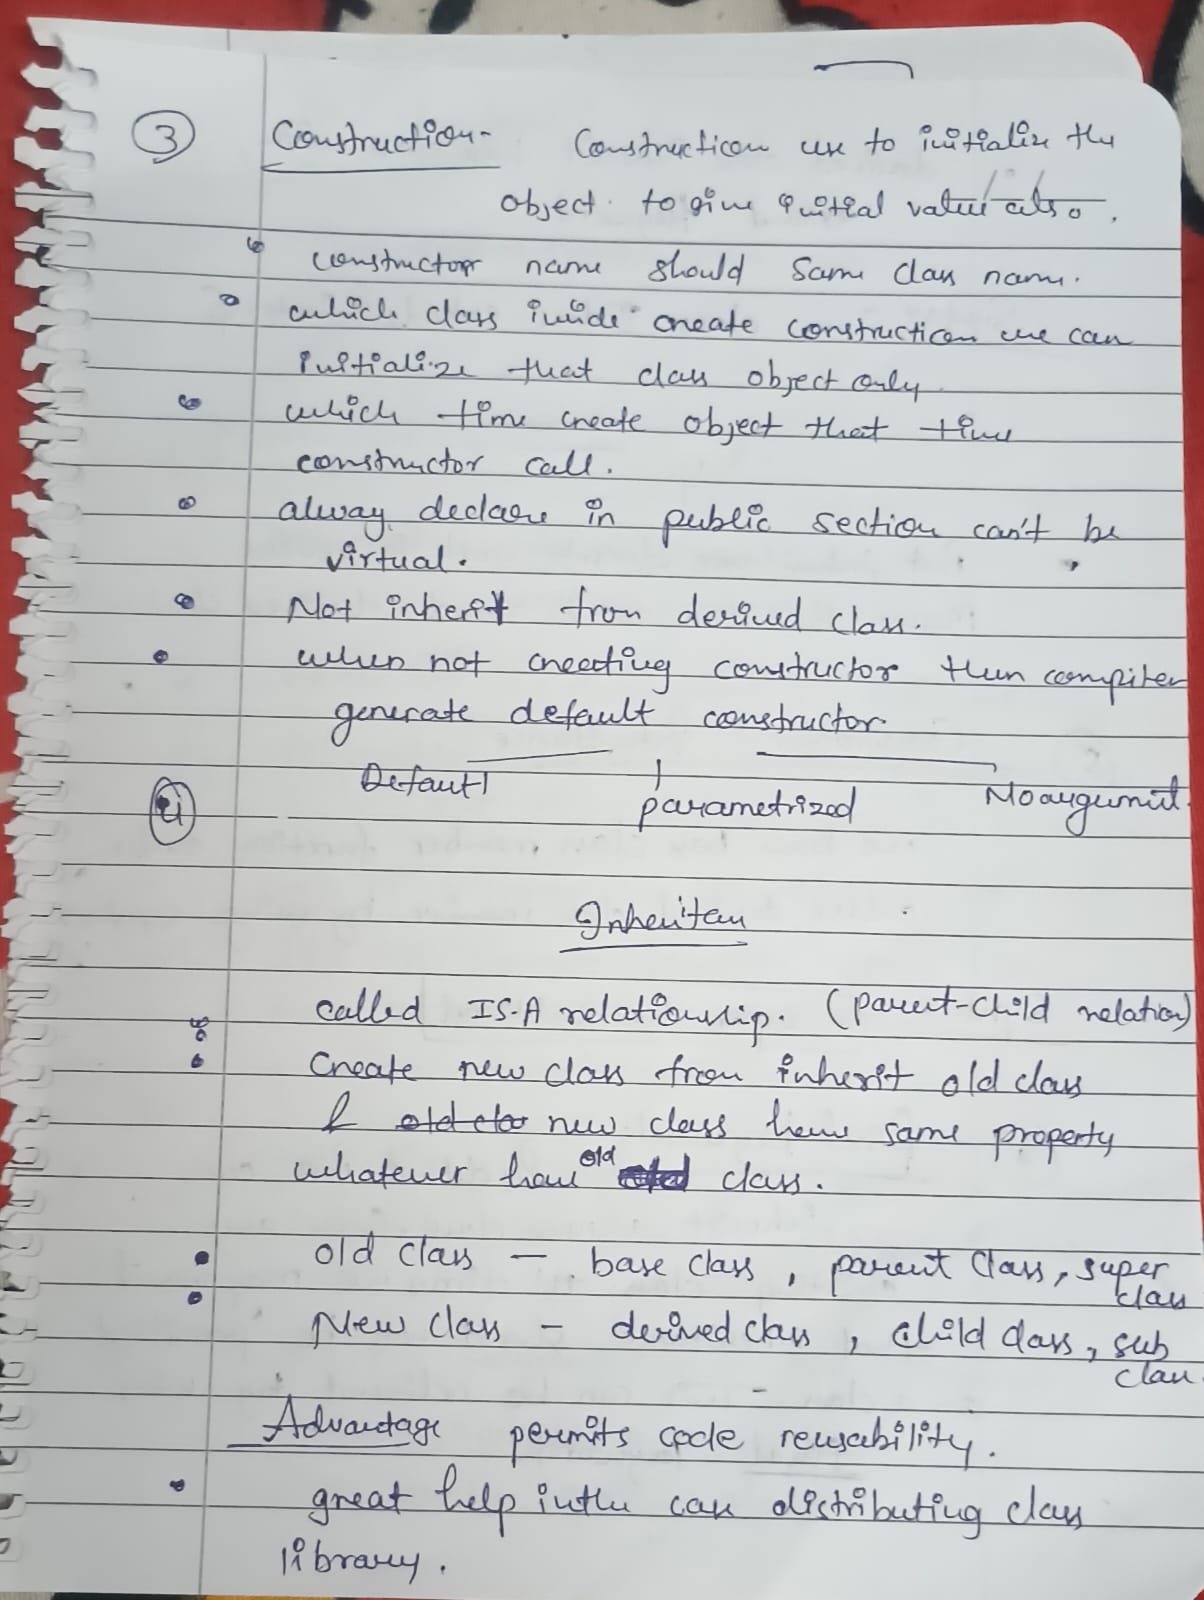 3 Construction- Construction use to initialize the
object. to give initial value also.
constructor name should same class name.
which class inside create construction we can
initialize that class object only
which time create object that time
constructor call.
alway declare in public section can't be
virtual.
Not inherit from derived class.
when not creating constructor then compiler
generate default constructor
Default parametrized No argument
Inheritan
called IS-A relationship. (parent-child relation)
Create new class from inherit old class
& old clas new class have same property
whatever have old class.
old class — base class, parent class, super
class
New class — derived class, child class, sub
class
Advantage permits code reusability.
great help in the case distributing class
library.